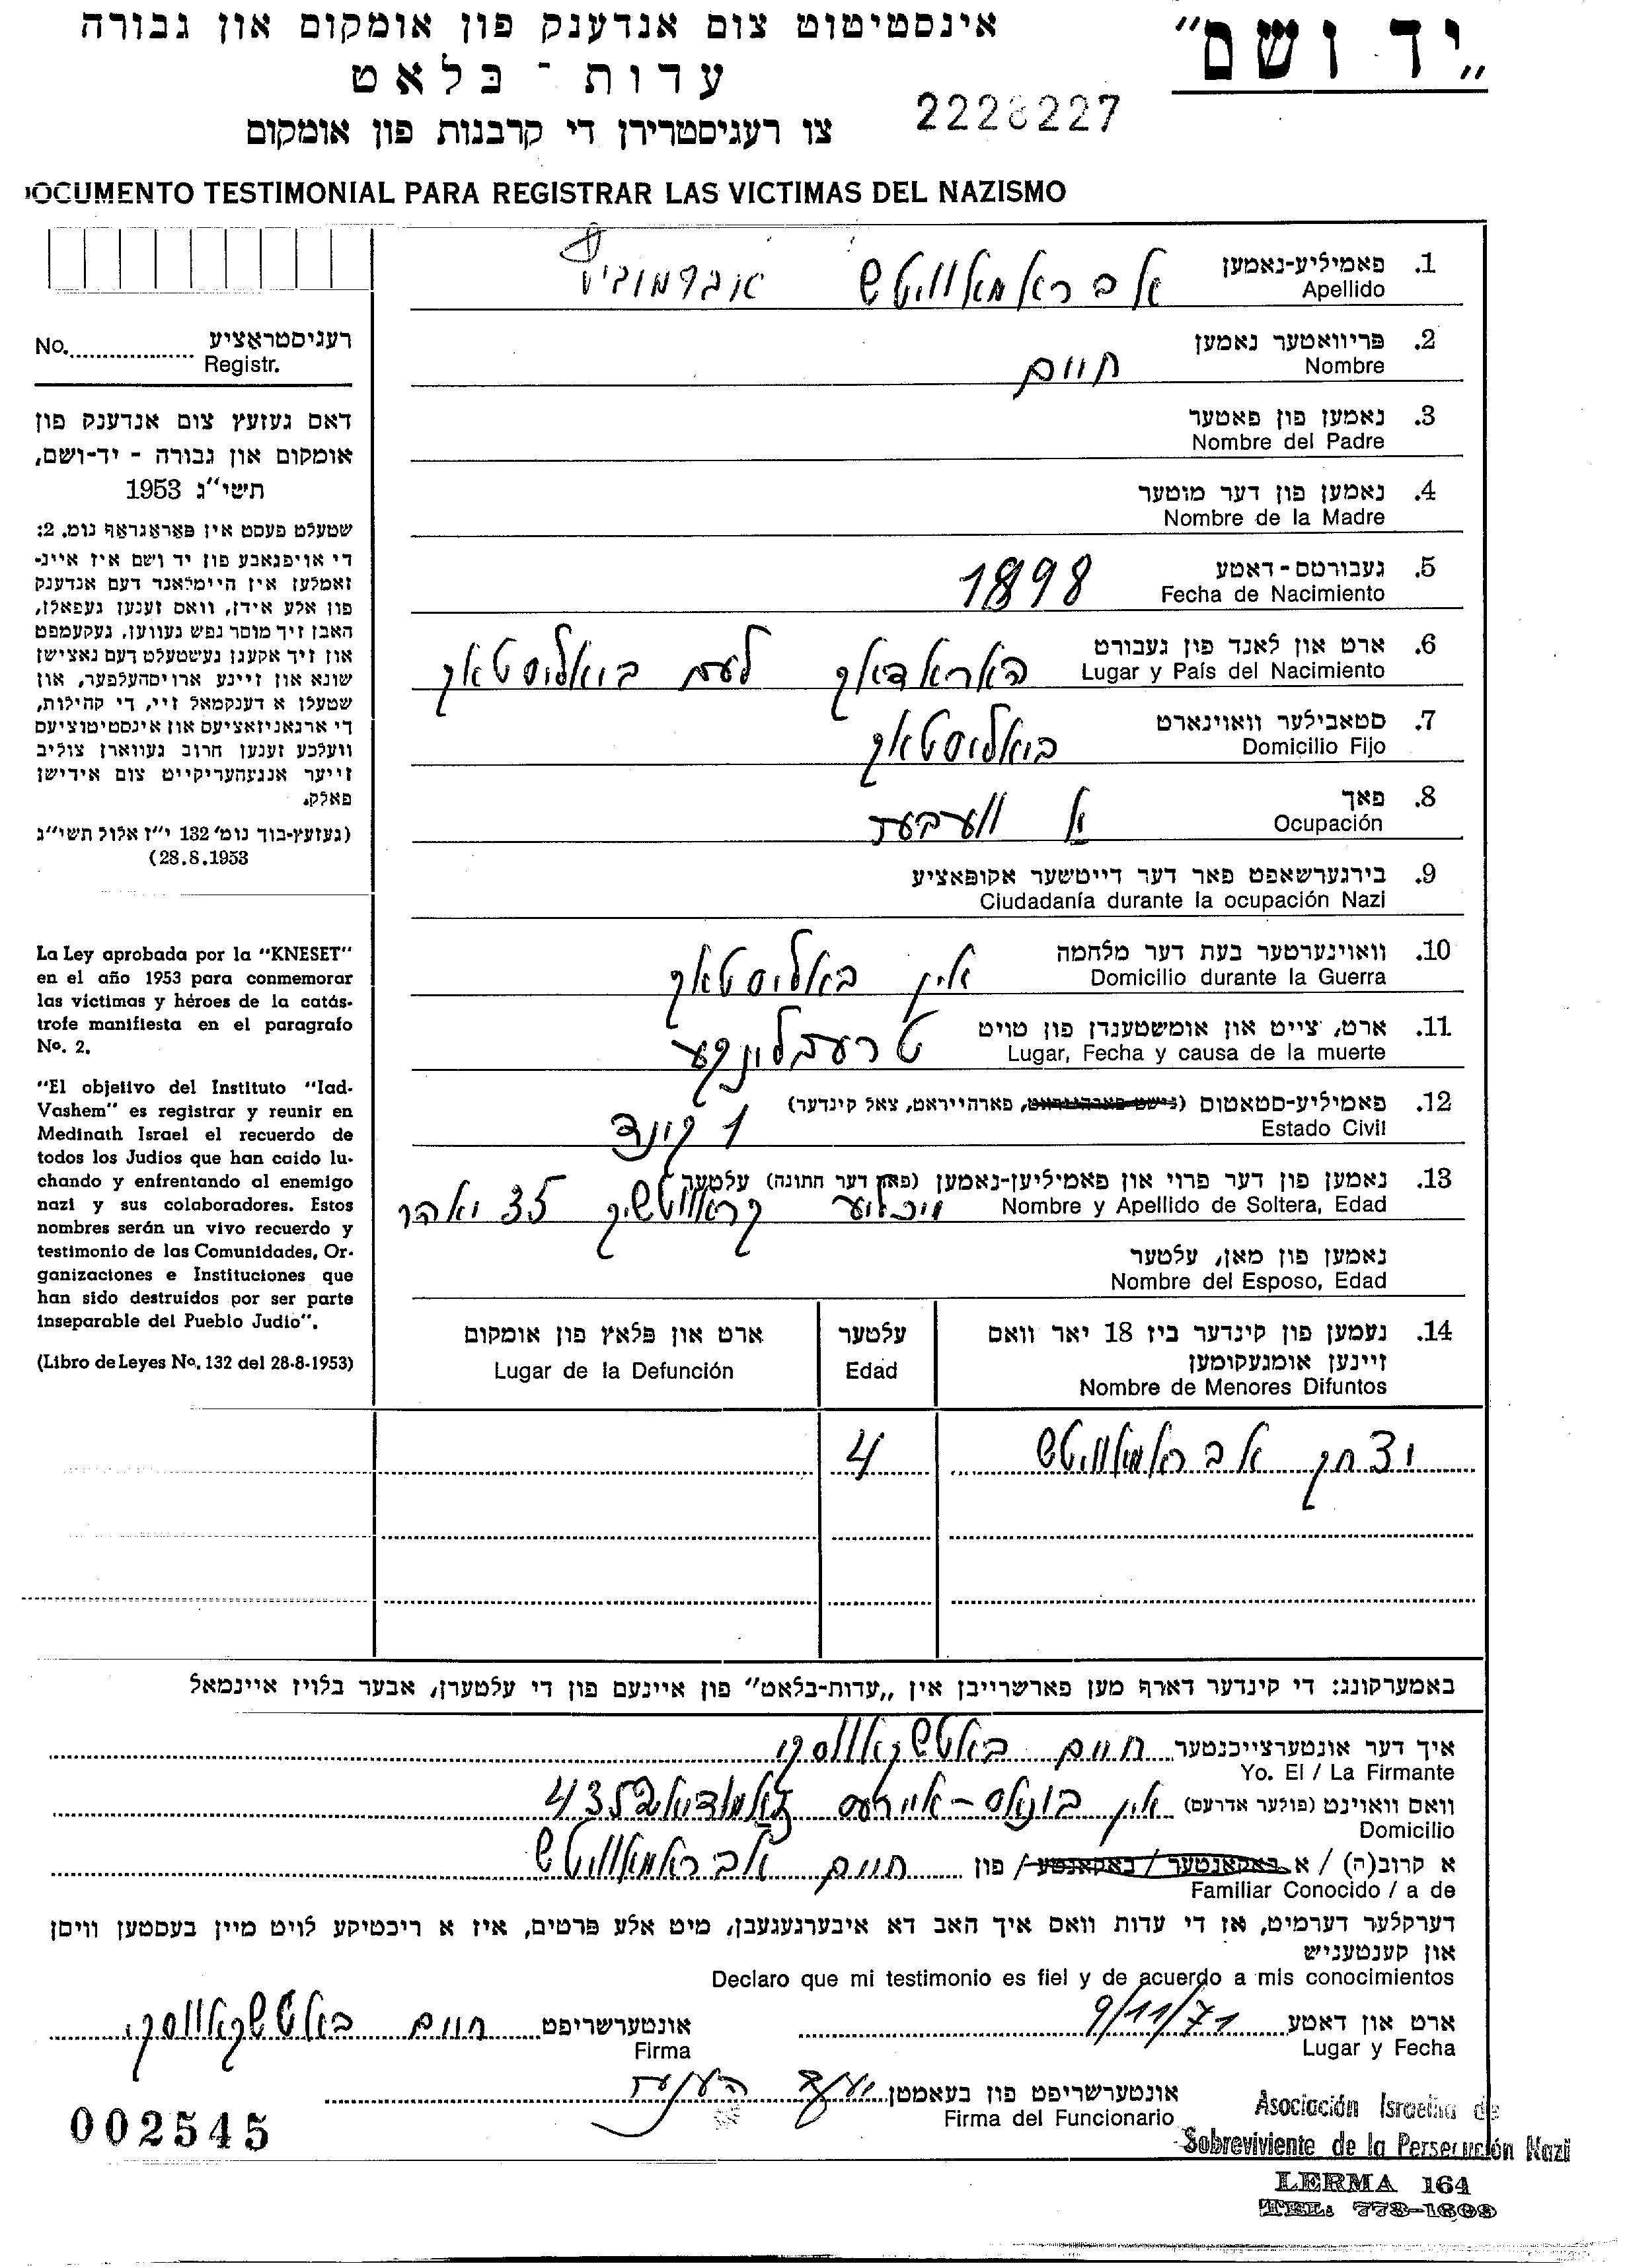 „יד ושם"
אינסטיטוט צום אנדענק פון אומקום און גבורה
עדות - בלאט
צו רעגיסטרירן די קרבנות פון אומקום
2228227
DOCUMENTO TESTIMONIAL PARA REGISTRAR LAS VICTIMAS DEL NAZISMO
No. ................... רעגיסטראציע
Registr.
דאס געזעץ צום אנדענק פון
אומקום און גבורה - יד-ושם,
תשי"ג 1953
שטעלט פעסט אין פאראגראף נומ. 2:
די אויפגאבע פון יד ושם איז איינ-
זאמלען אין היימלאנד דעם אנדענק
פון אלע אידן, וואס זענען געפאלן,
האבן זיך מוסר נפש געווען, געקעמפט
און זיך אקעגן געשטעלט דעם נאצישן
שונא און זיינע ארויסהעלפער, און
שטעלן א דענקמאל זיי, די קהילות,
די ארגאניזאציעס און אינסטיטוציעס
וועלכע זענען חרוב געווארן צוליב
זייער אנגעהעריקייט צום אידישן
פאלק.
(געזעץ-בוך נומ' 132 י"ז אלול תשי"ג
28.8.1953)
La Ley aprobada por la "KNESET"
en el año 1953 para conmemorar
las víctimas y héroes de la catás-
trofe manifiesta en el paragrafo
No. 2.
"El objetivo del Instituto "Iad-
Vashem" es registrar y reunir en
Medinath Israel el recuerdo de
todos los Judios que han caido lu-
chando y enfrentando al enemigo
nazi y sus colaboradores. Estos
nombres serán un vivo recuerdo y
testimonio de las Comunidades, Or-
ganizaciones e Instituciones que
han sido destruidos por ser parte
inseparable del Pueblo Judio".
(Libro de Leyes No. 132 del 28-8-1953)
1. פאמיליע-נאמען אבראמאוויטש אברמוביץ
Apellido
2. פריוואטער נאמען חיים
Nombre
3. נאמען פון פאטער
Nombre del Padre
4. נאמען פון דער מוטער
Nombre de la Madre
5. געבורטס-דאטע 1898
Fecha de Nacimiento
6. ארט און לאנד פון געבורט האראדאק לעם ביאליסטאק
Lugar y País del Nacimiento
7. סטאבילער וואוינארט ביאליסטאק
Domicilio Fijo
8. פאך
Ocupación
9. בירגערשאפט פאר דער דייטשער אקופאציע
Ciudadanía durante la ocupación Nazi
10. וואוינערטער בעת דער מלחמה אין באליסטאק
Domicilio durante la Guerra
11. ארט, צייט און אומשטענדן פון טויט טרעבלינקע
Lugar, Fecha y causa de la muerte
12. פאמיליע-סטאטוס (נישט פארהייראט, פארהייראט, צאל קינדער) 1 קינד
Estado Civil
13. נאמען פון דער פרוי און פאמיליען-נאמען (פאר דער חתונה) עלטער 35 יאהר
Nombre y Apellido de Soltera, Edad
נאמען פון מאן, עלטער
Nombre del Esposo, Edad
14. נעמען פון קינדער ביז 18 יאר וואס זיינען אומגעקומען
Nombre de Menores Difuntos
עלטער
Edad
ארט און פלאץ פון אומקום
Lugar de la Defunción
יצחק אבראמאוויטש 4
באמערקונג: די קינדער דארף מען פארשרייבן אין „עדות-בלאט" פון איינעם פון די עלטערן, אבער בלויז איינמאל
איך דער אונטערצייכנטער חיים באטשקאווסקי
Yo. El / La Firmante
וואס וואוינט (פולער אדרעס) אין בוענאס-איירעס 4352
Domicilio
א קרוב(ה) / א באקאנטער / באקאנטע / פון חיים אבראמאוויטש
Familiar Conocido / a de
דערקלער דערמיט, אז די עדות וואס איך האב דא איבערגעגעבן, מיט אלע פרטים, איז א ריכטיקע לויט מיין בעסטען וויסן
און קענטעניש
Declaro que mi testimonio es fiel y de acuerdo a mis conocimientos
ארט און דאטע 9/11/71 אונטערשריפט חיים באטשקאווסקי
Lugar y Fecha Firma
אונטערשריפט פון בעאמטן
Firma del Funcionario
002545
Asociación Israelita de
Sobreviviente de la Persecución Nazi
LERMA 164
TEL: 773-1693